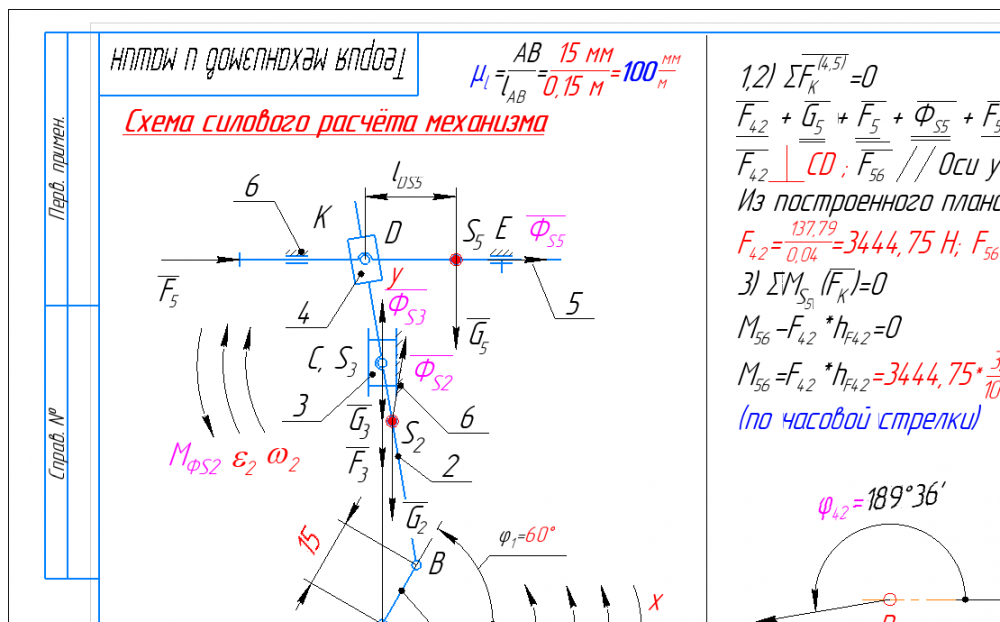 Теория механизмов и машин
Перв. примен.
Справ. №
μl = AB / lAB = 15 мм / 0,15 м = 100 мм/м
Схема силового расчёта механизма
lDS5
6
K
D
S5
E
ΦS5
F5
y
ΦS3
4
5
G5
C, S3
ΦS2
3
G3
6
S2
F3
2
MΦS2
ε2
ω2
G2
15
φ1=60°
B
x
1,2) ΣFK(4,5)=0
F42 + G5 + F5 + ΦS5 + F5
F42 ⊥ CD ; F56 // Оси y
Из построенного плана
F42 = 137,79 / 0,04 = 3444,75 Н; F56
3) ΣMS5(FK)=0
M56 -F42 *hF42=0
M56 =F42 *hF42=3444,75*
(по часовой стрелки)
φ42=189°36'